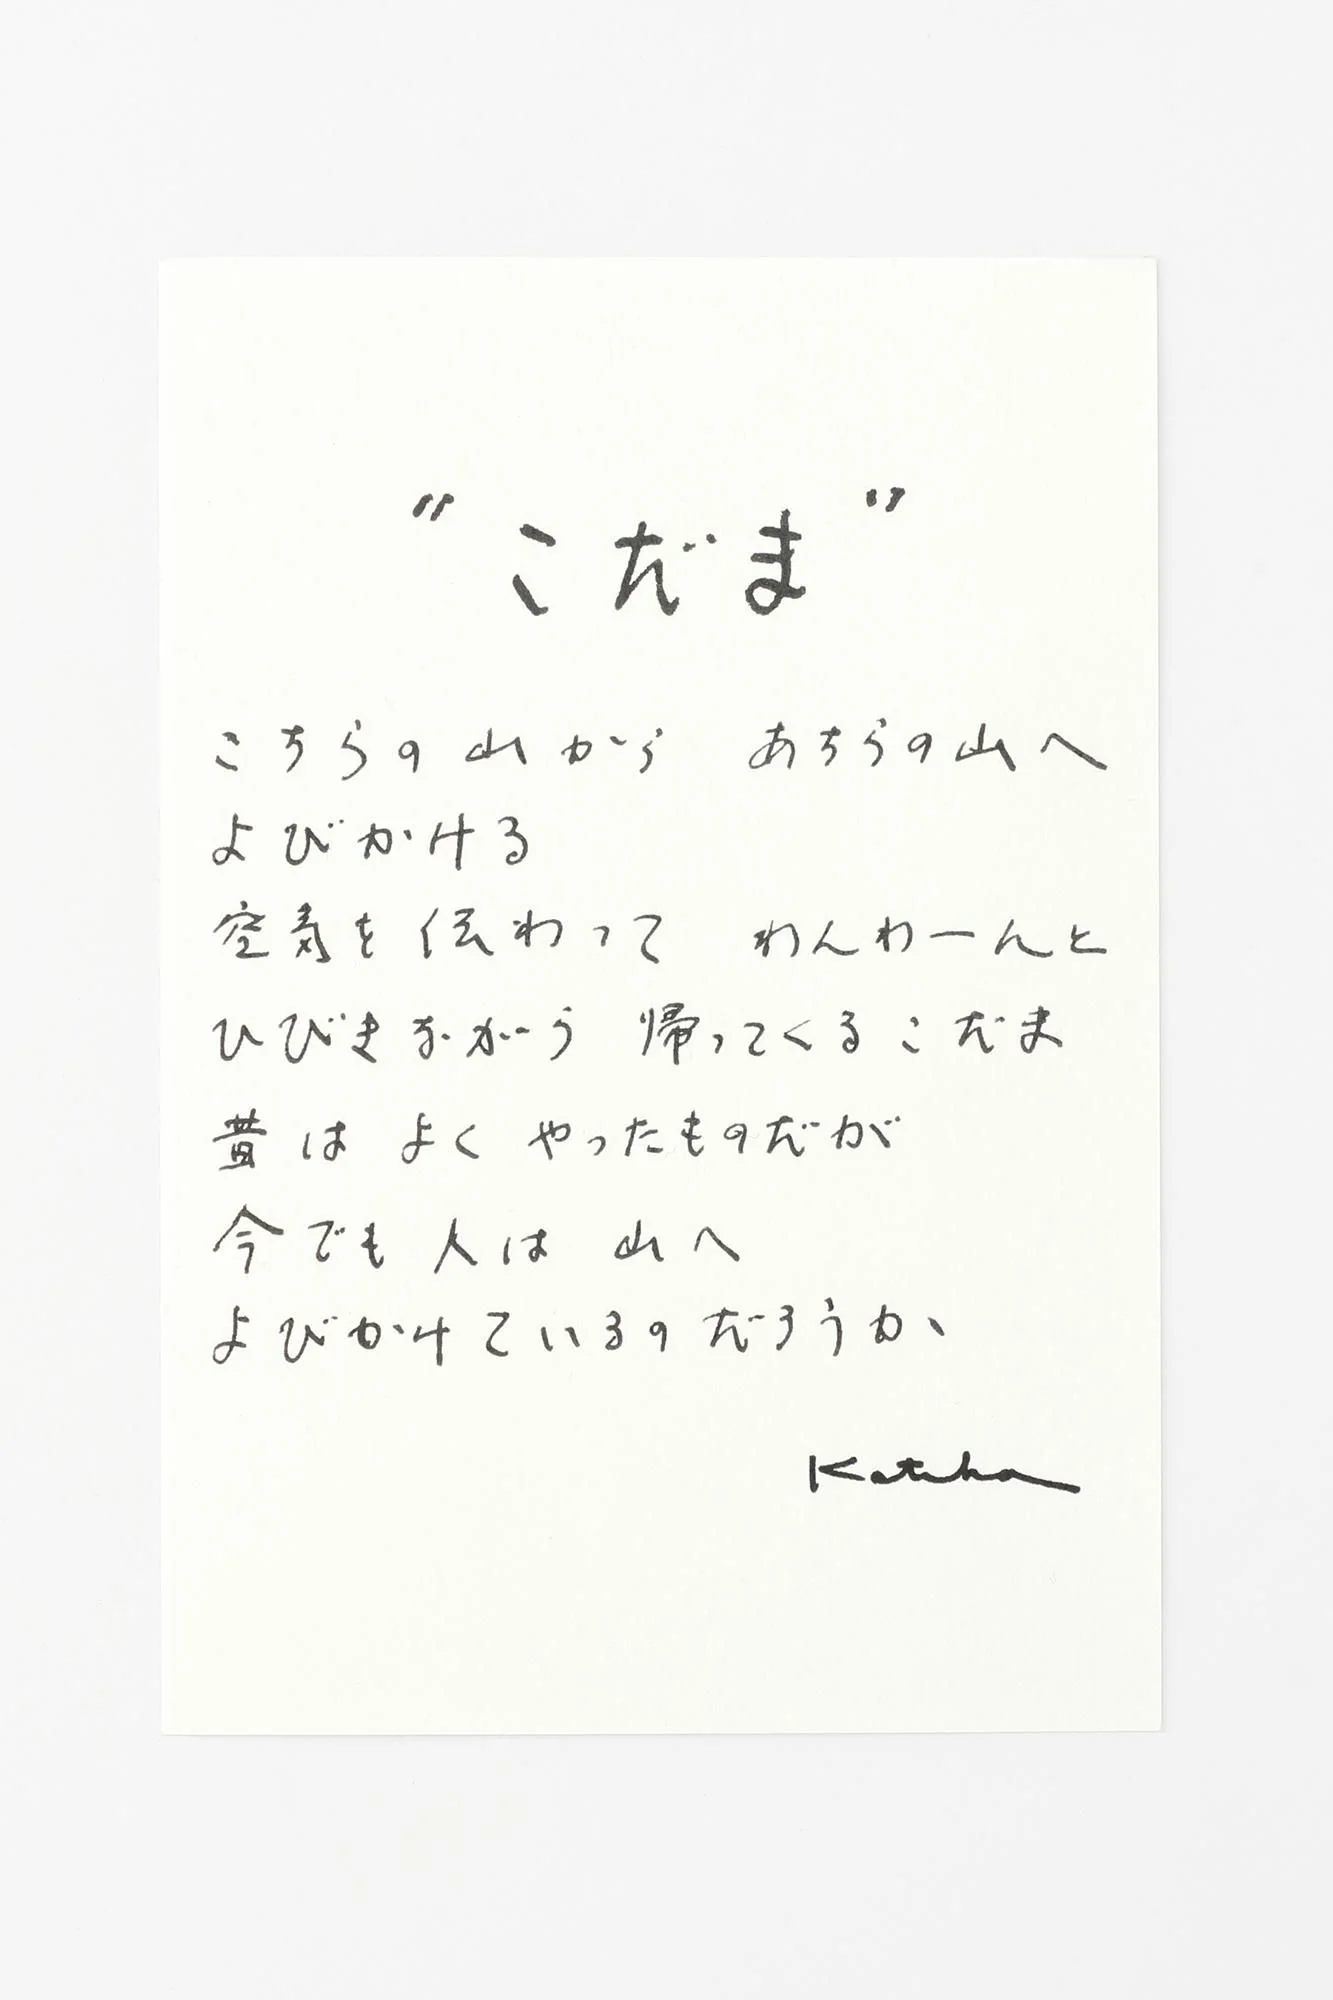 "こだま"
こちらの山から　あちらの山へ
よびかける
空気を伝わって　わんわーんと
ひびきながら 帰ってくるこだま
昔は よく やったものだが
今でも 人は 山へ
よびかけているのだろうか、